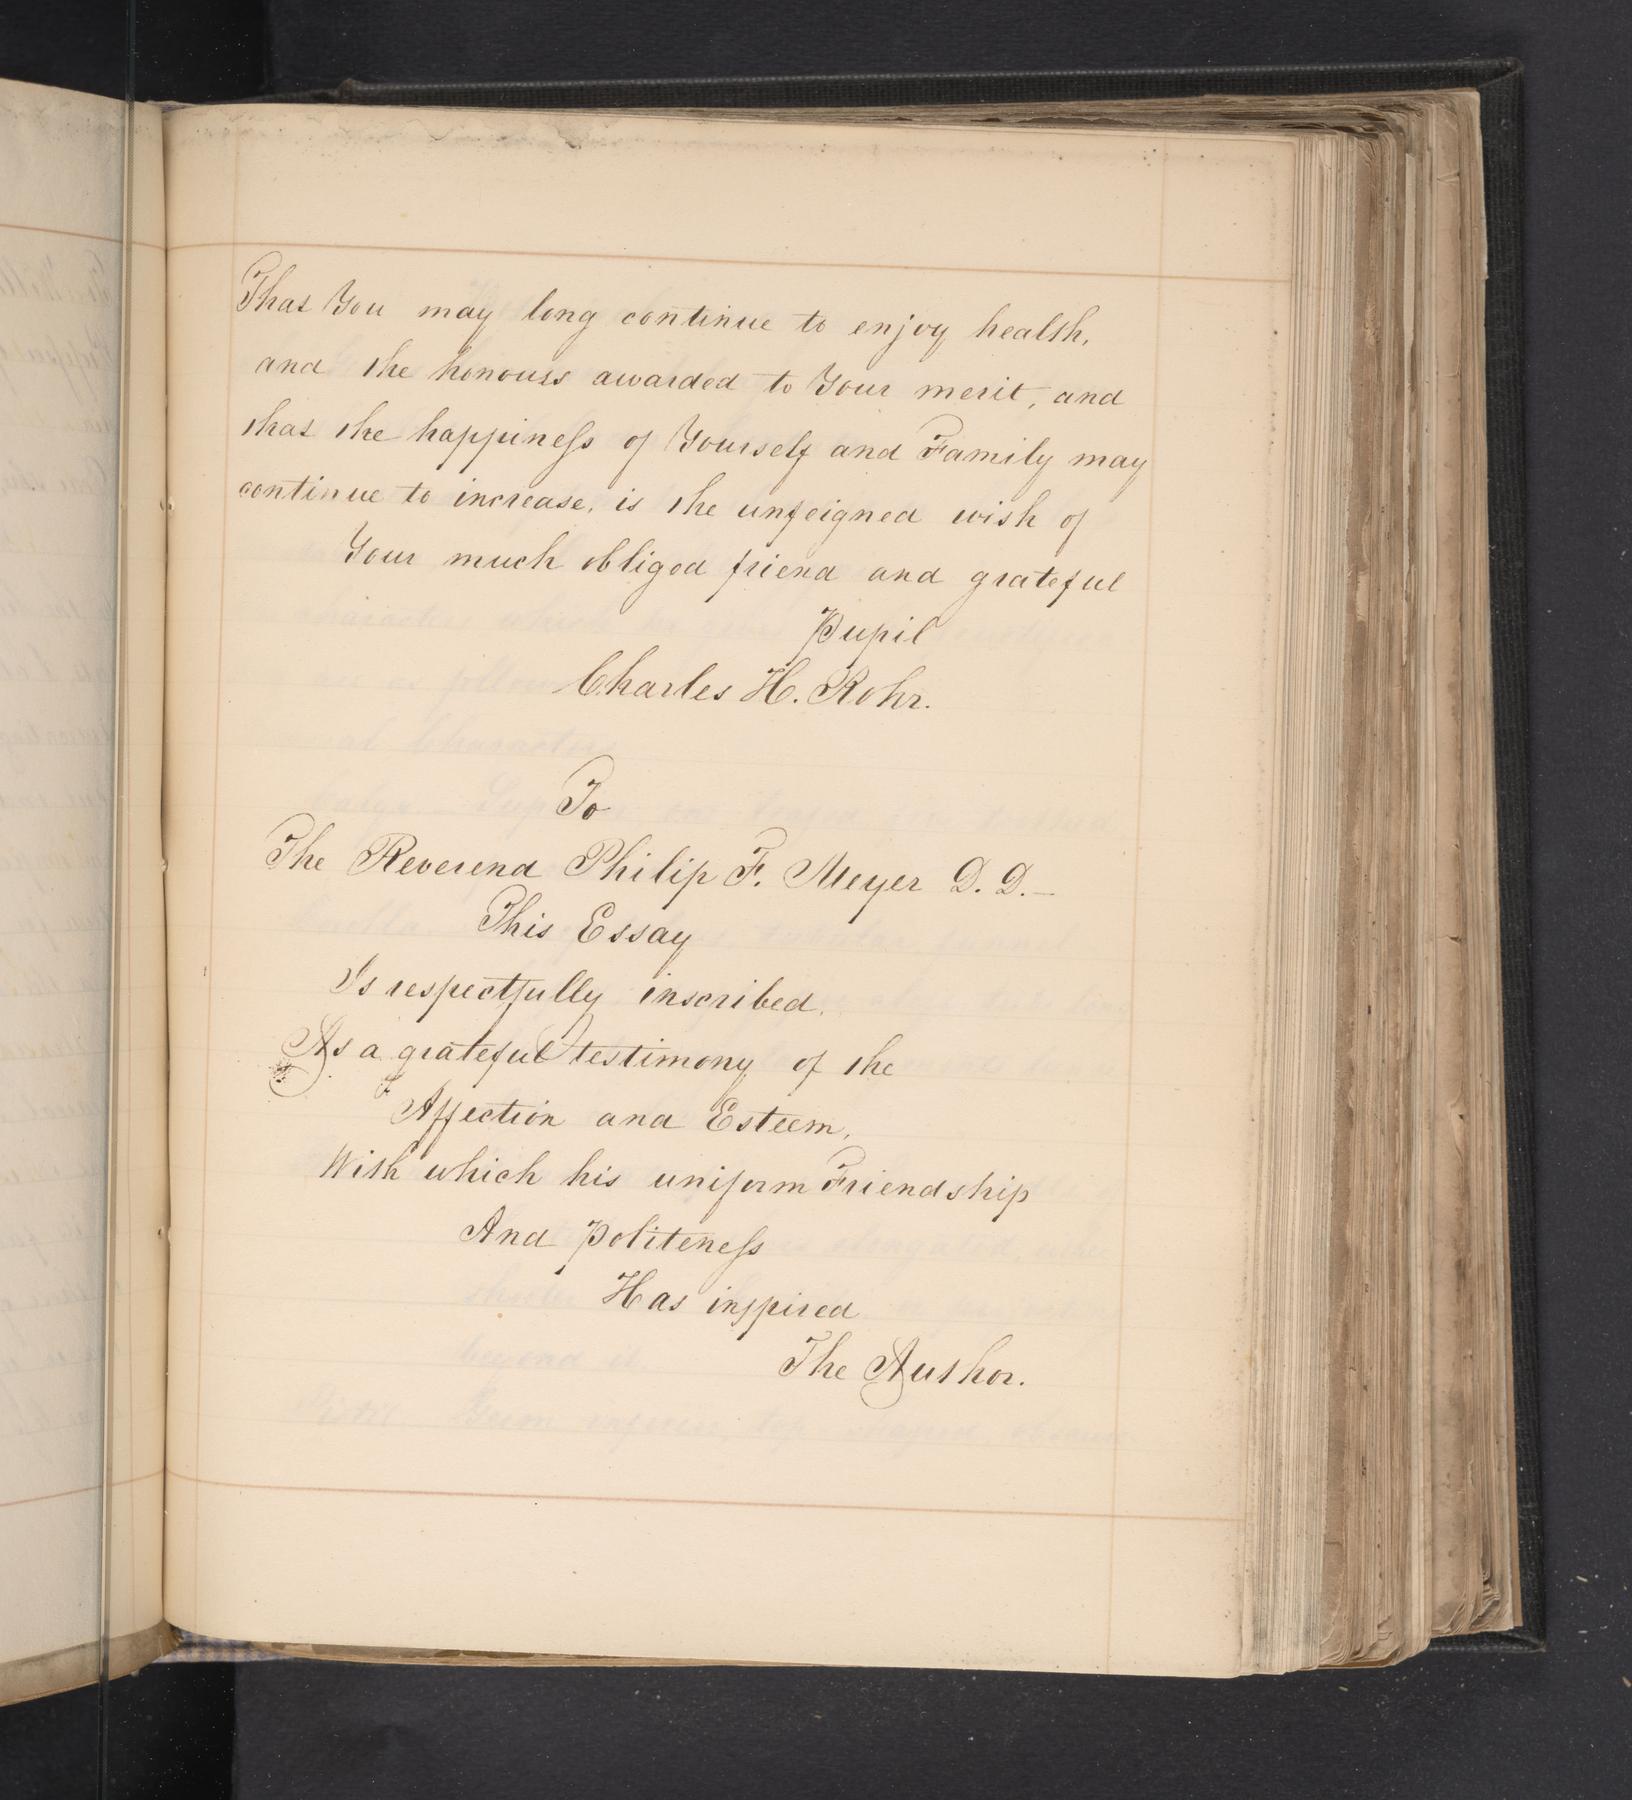 That You may long continue to enjoy health,
and the honours awarded to Your merit, and
that the happiness of Yourself and Family may
continue to increase, is the unfeigned wish of
Your much obliged friend and grateful
Pupil
Charles H. Rohr.
To
The Reverend Philip F. Meyer D. D.—
This Essay
Is respectfully inscribed.
As a grateful testimony of the
Affection and Esteem,
With which his uniform Friendship
And Politeness
Has inspired
The Author.